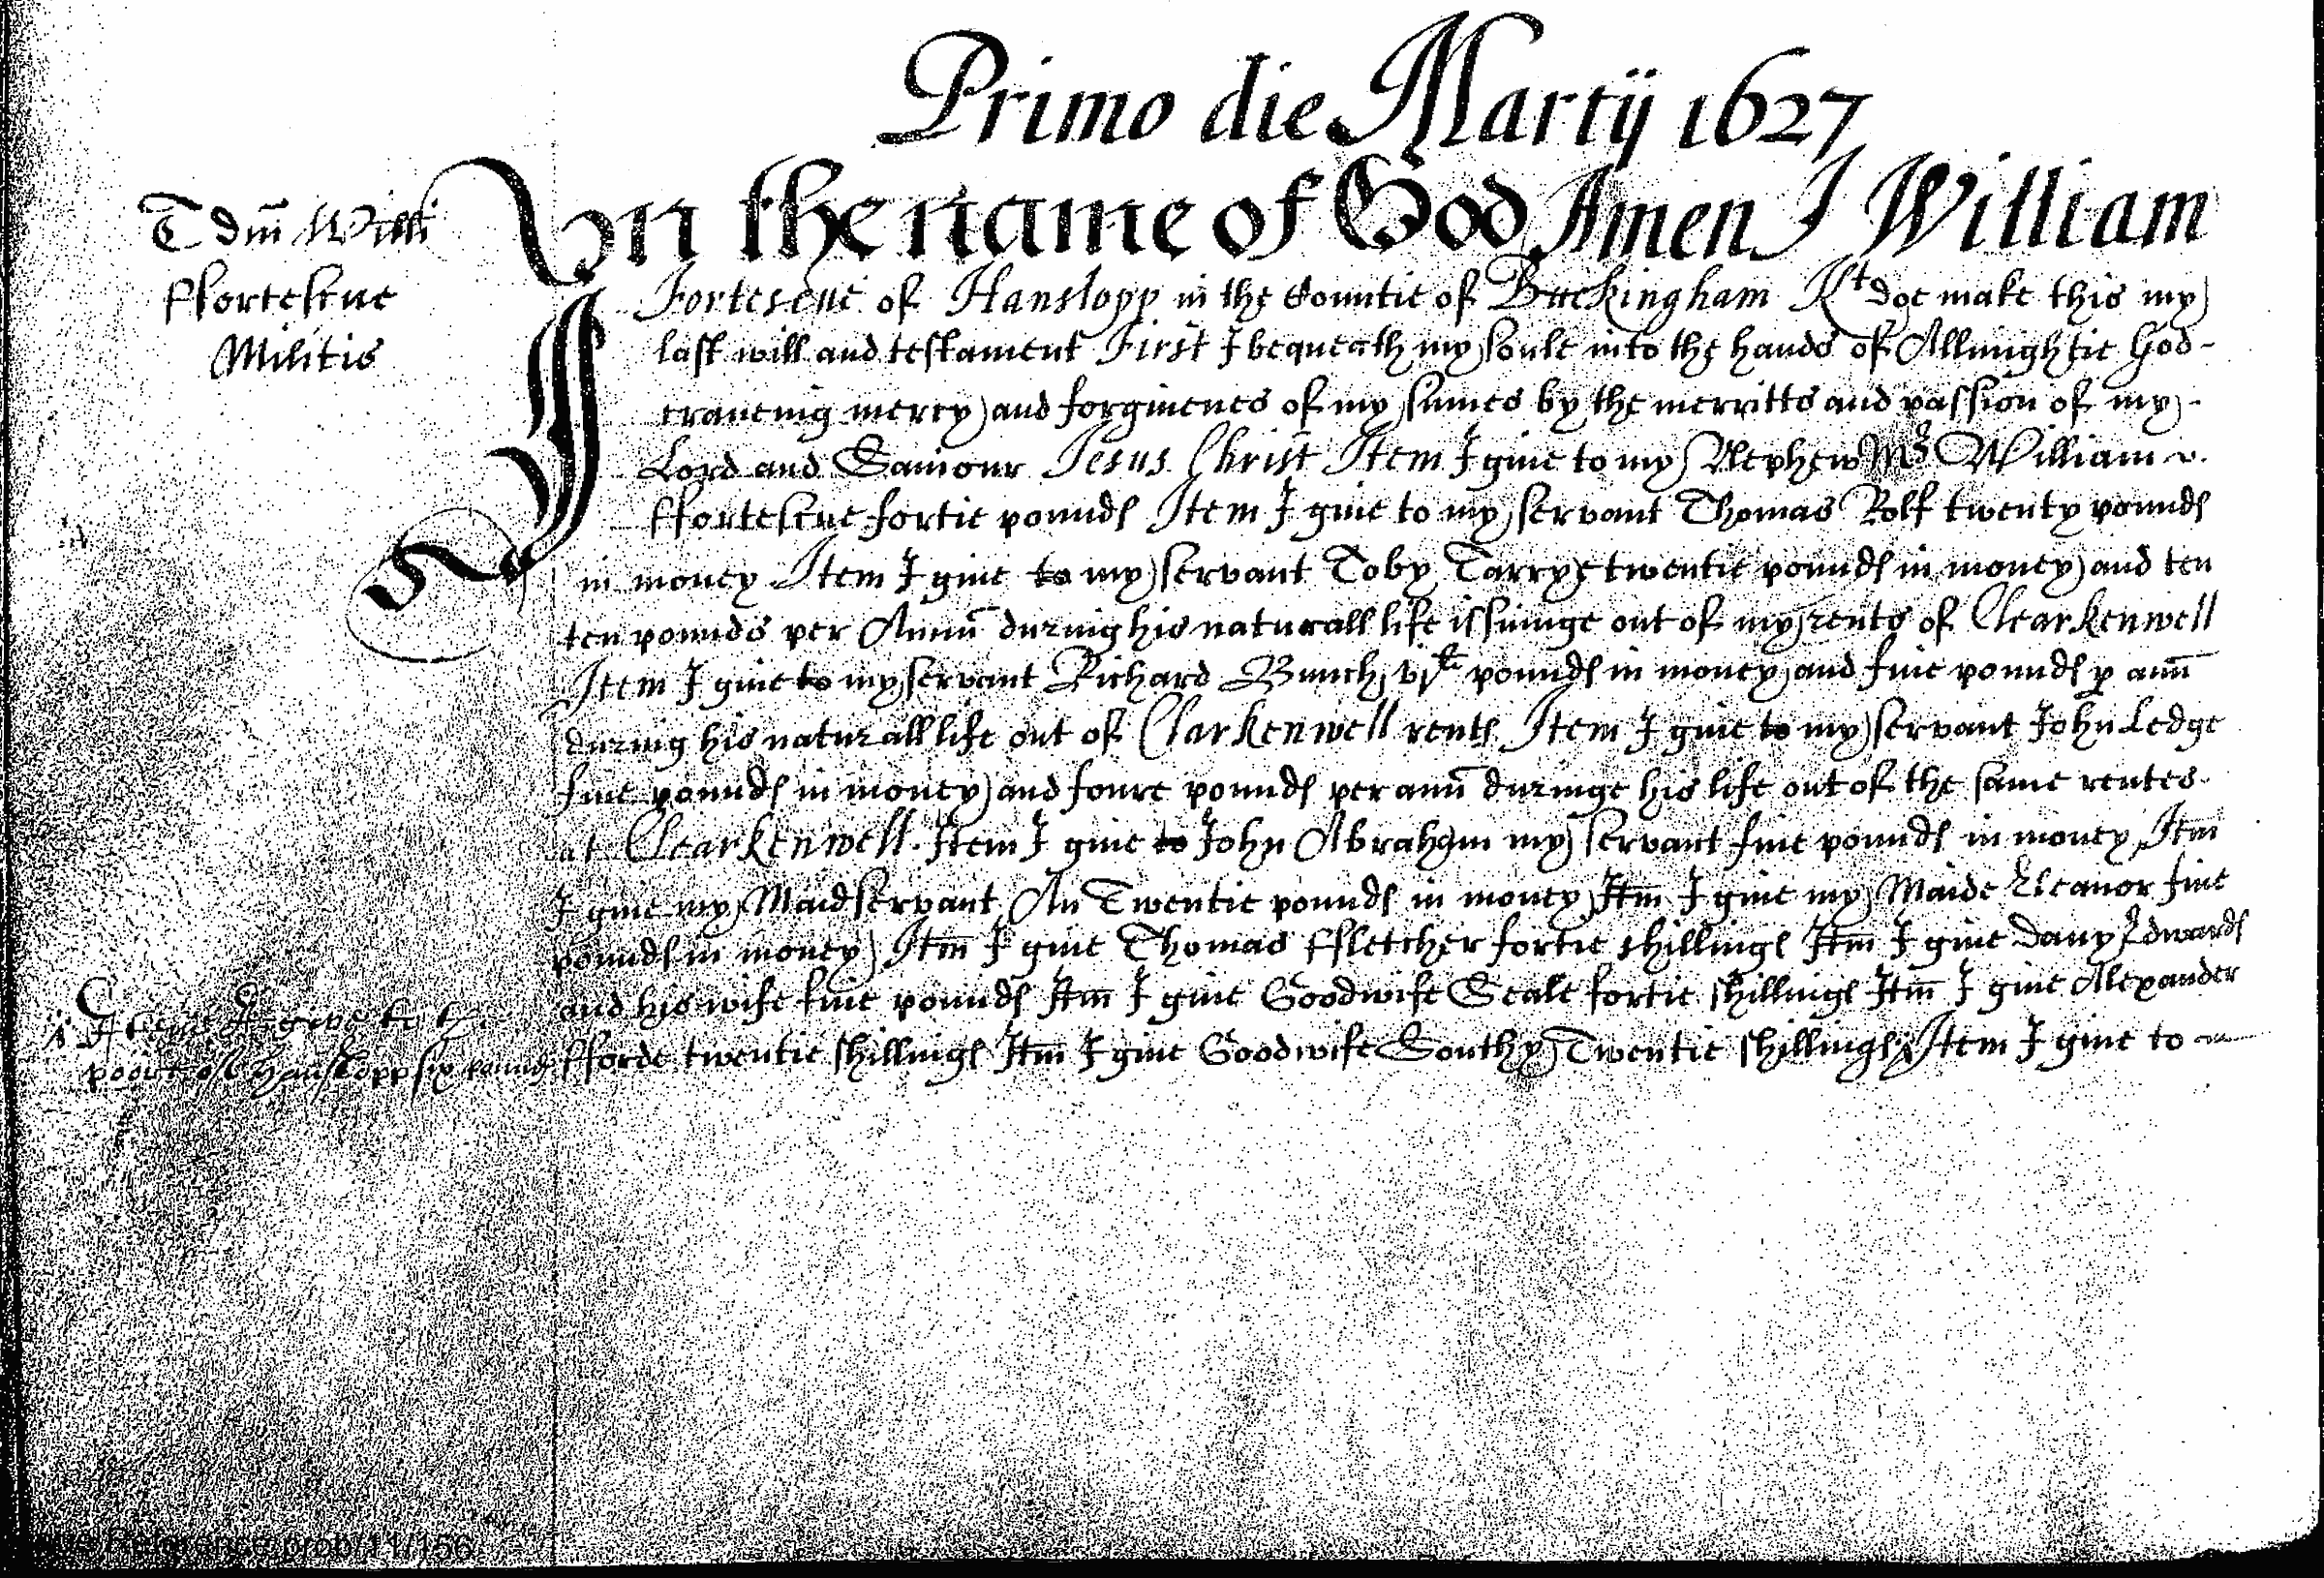 Primo die Martij 1627
In the name of God Amen I William
T dm̄ Willi
ffortescue
Militis
Fortescue of Hanslopp in the Countie of Buckingham Kt doe make this my
last will and testament First I bequeath my soule into the hands of Allmightie God
craueing mercy and forgiuenes of my sinnes by the merritts and passion of my
Lord and Sauiour Jesus Christ Item I giue to my Nephew Mr William
ffortescue fortie pounds Item I giue to my servant Thomas Rolf twenty pounds
in money Item I giue to my servant Toby Tarrye twentie pounds in money and ten
ten pounds per Annū during his naturall life issuinge out of my rents of Clearkenwell
Item I giue to my servant Richard Bunch pounds in money and fiue pounds p annū
during his naturall life out of Clarkenwell rents Item I giue to my servant John Ledge
fiue pounds in money and foure pounds per annū duringe his life out of the same rentes
at Clearkenwell. Item I giue to John Abraham my servant fiue pounds in money Itm̄
I giue my Maidservant An Twentie pounds in money Itm̄ I giue my Maide Eleanor fiue
pounds in money Itm̄ I giue Thomas ffletcher fortie shillings Itm̄ I giue Dauy Edwards
and his wife fiue pounds Itm̄ I giue Goodwife Seale fortie shillings Itm̄ I giue Alexander
fforde twentie shillings Itm̄ I giue Goodwife Southy Twentie shillings Item I giue to
Item I give to the
poore of Hanslopp six pounds
Reference prob/11/156